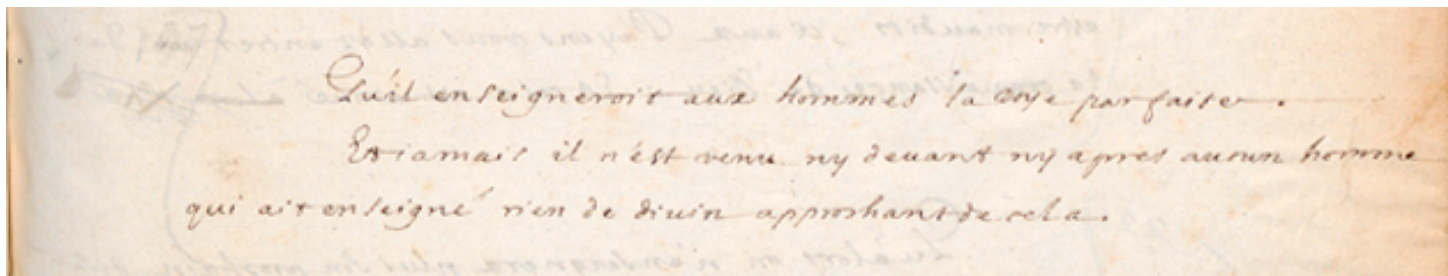 Qu'il enseigneroit aux hommes la voye parfaite.
Et iamais il n'est venu ny deuant ny apres aucun homme
qui ait enseigné rien de diuin approchant de cela.